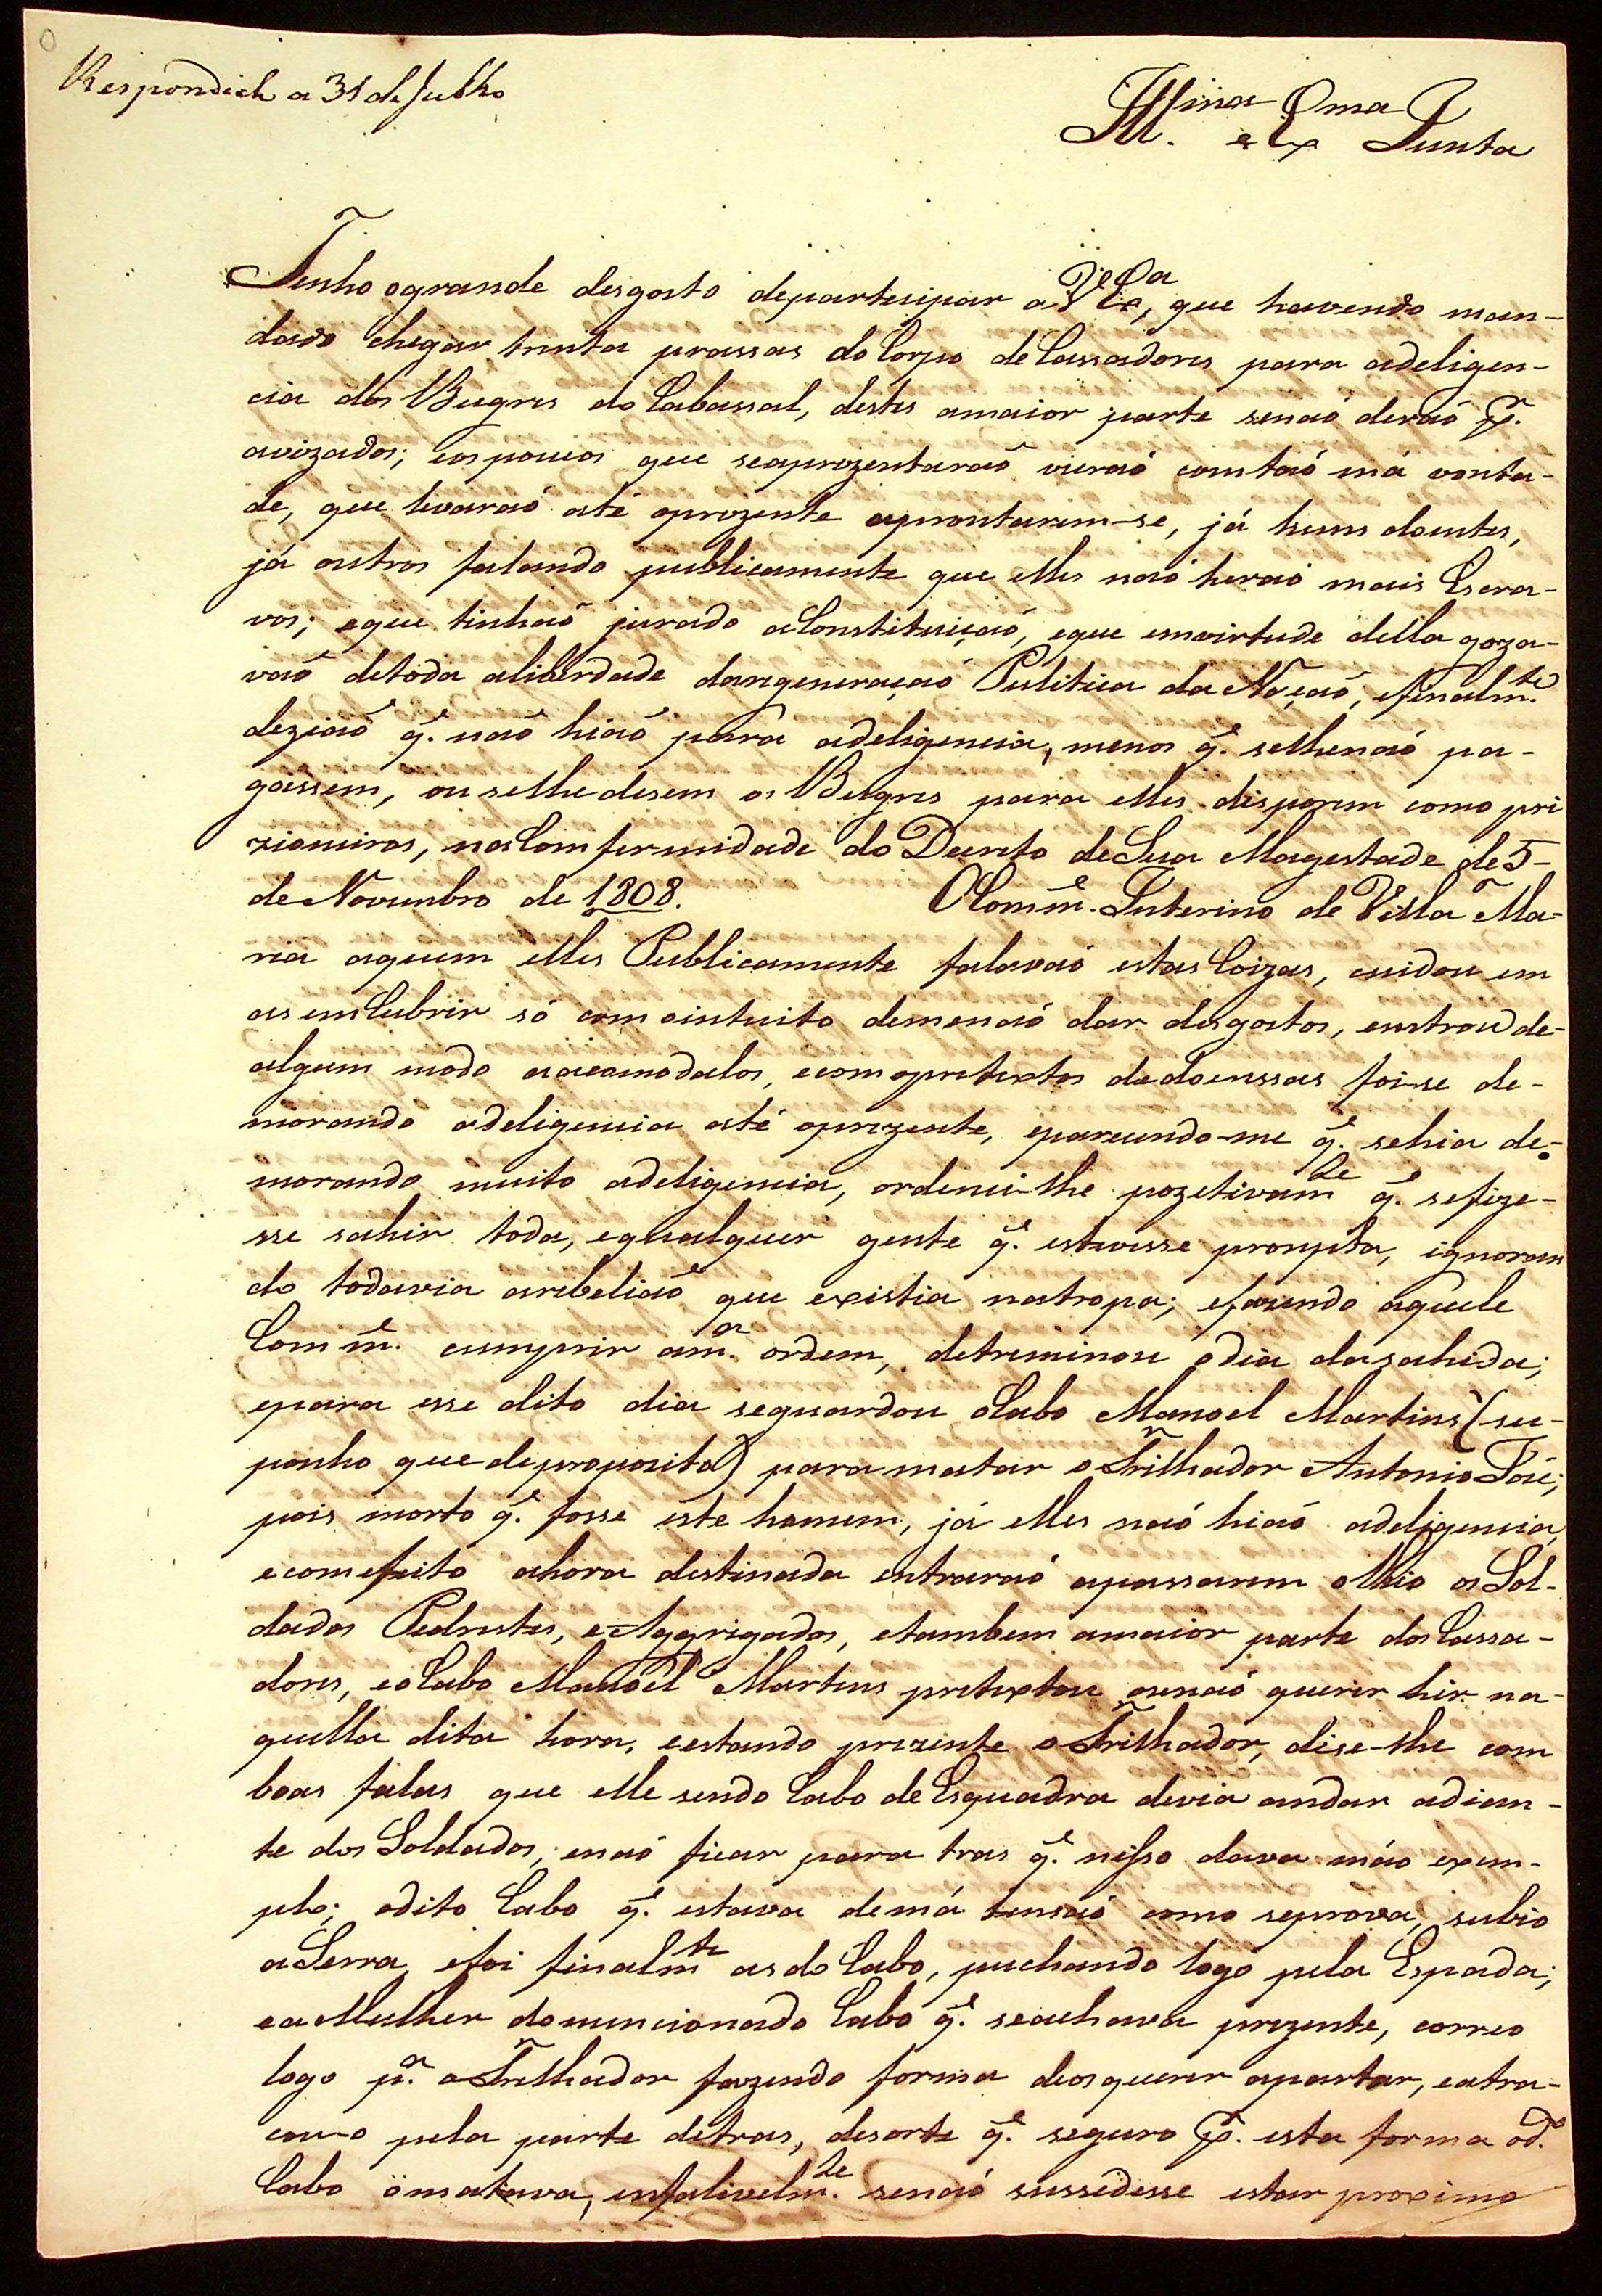 Respondida a 31 de Julho
Ill.ma e Ex.ma Junta
Tenho ogrande desgosto departisipar aV Ex.ª, que havendo man-
dado chegar trinta prassas do Corpo de Cassadores para adeligen-
cia dos Bugres do Cabassal, destes amaior parte senaõ deraõ p.
avizados; eos poucos que seaprezentaraõ vieraõ comtaõ má vonta-
de, que levaraõ até oprezente aprontarem-se, já huns doentes,
já outros falando publicamente que elles naõ heraõ mais Escra-
vos; eque tinhaõ jurado aConstituiçaõ, eque emvirtude della goza-
vaõ detoda aliberdade daregeneraçaõ Pulitica da Naçaõ, efinalm.te
deziaõ q̃. naõ hiaõ para adeligencia, menos q̃. selhenaõ pa-
gassem, ou selhe desem os Bugres para elles disporem como pri
zioneiros, naComfermidade do Decreto de Sua Magestade de 5-
de Novembro de 1808. OCom.e Interino de Villa Ma-
ria aquem elles Publicamente falavaõ estas Coizas, cuidou em
as emCubrir só com ointuito demenaõ dar desgostos, emtrou de-
algum modo aacomodalos, ecom opretextos dedoenssas foi-se de-
morando adeligencia até oprezente, eparecendo-me q̃. sehia de-
morando muito adeligencia, ordenei-lhe pozetivam.te q̃. sefize-
sse sahir toda, equalquer gente q̃. estivesse prompta, ignoran
do todavia arebeliaõ que existia natropa; efazendo aquele
Com.e cumprir am.ª ordem, detreminou odia dasahida;
epara esse dito dia seguardou oCabo Manoel Martins (su-
ponho que deproposito) para matar o Trilhador Antonio José;
pois morto q̃. fosse este homem, já elles naõ hiaõ adeligencia,
ecomefeito ahora destinada entraraõ apassarem oRio os Sol-
dados Pedrestes, e Aggrigados, etambem amaior parte dos Cassa-
dores, eoCabo Manoel Martins pretextou osenaõ querer hir na-
quella dita hora, eestando prezente o Trilhador, dise-lhe com
boas falas que elle sendo Cabo de Esquadra devia andar adian-
te dos Soldados, enaõ ficar para tras q̃. nisso dava máo exem-
plo; odito Cabo q̃. estava demá tensaõ como seprova, subio
aSerra, efoi finalm.te as do Cabo, puchando logo pela Espada;
ea Mulher domencionado Cabo q̃. seachava prezente, correo
logo p.ª oTrilhador fazendo forma deosquerer apartar, eatra-
cou-o pela parte detras, desorte q̃. seguro p. esta forma od.º
Cabo omatava, enfalivelm.te senaõ sussedesse estar proximo